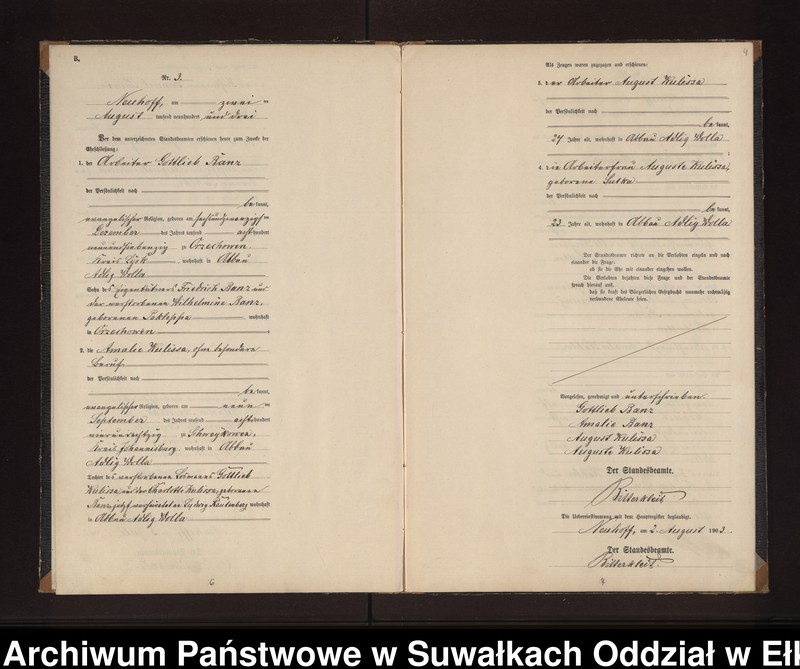 B.
Nr. 3.
Neuhoff, am zwei ten
August tausend neunhundert und drei
Vor dem unterzeichneten Standesbeamten erschienen heute zum Zwecke der
Eheschließung:
1. der Arbeiter Gottlieb Ranz
der Persönlichkeit nach
be kannt,
evangelischer Religion, geboren am sechsundzwanzigsten
Dezember des Jahres tausend acht hundert
neunundsiebenzig zu Orzechowen,
Kreis Lyck, wohnhaft in Abbau
Adlig Wolla
Sohn des Eigentümers Friedrich Ranz und
der verstorbenen Wilhelmine Ranz,
geborenen wohnhaft
in Orzechowen
2. die Amalie Kulissa, ohne besonderen
Beruf,
der Persönlichkeit nach
be kannt,
evangelischer Religion, geboren am neun ten
September des Jahres tausend acht hundert
vierundachtzig zu Schweykowen,
Kreis Johannisburg, wohnhaft in Abbau
Adlig Wolla
Tochter des verstorbenen Losmanns Gottlieb
Kulissa und der Charlotte Kulissa, geborenen
Ranz, jetzt wohnhaft
in Abbau Adlig Wolla
6
4
Als Zeugen waren zugezogen und erschienen:
3. der Arbeiter August Kulissa
der Persönlichkeit nach
be kannt,
24 Jahre alt, wohnhaft in Abbau Adlig Wolla
4. die Arbeiterfrau Auguste Kulissa,
geborene Sutka
der Persönlichkeit nach
be kannt,
23 Jahre alt, wohnhaft in Abbau Adlig Wolla
Der Standesbeamte richtete an die Verlobten einzeln und nach
einander die Frage:
ob sie die Ehe mit einander eingehen wollen.
Die Verlobten bejahten diese Frage und der Standesbeamte
sprach hierauf aus,
daß sie kraft des Bürgerlichen Gesetzbuchs nunmehr rechtmäßig
verbundene Eheleute seien.
Vorgelesen, genehmigt und unterschrieben
Gottlieb Ranz
Amalie Ranz
August Kulissa
Auguste Kulissa
Der Standesbeamte.
Die Uebereinstimmung mit dem Hauptregister beglaubigt.
Neuhoff, am 2. August 1903.
Der Standesbeamte.
7
Archiwum Państwowe w Suwałkach Oddział w Eł